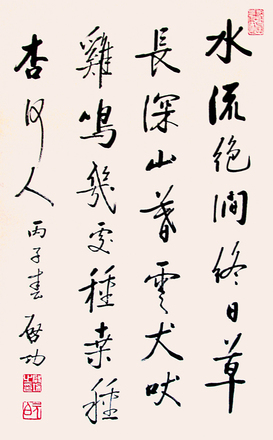 水流絕澗終日草
長深山暮雲犬吠
雞鳴幾處種桑種
杏何人
丙子春 啟功